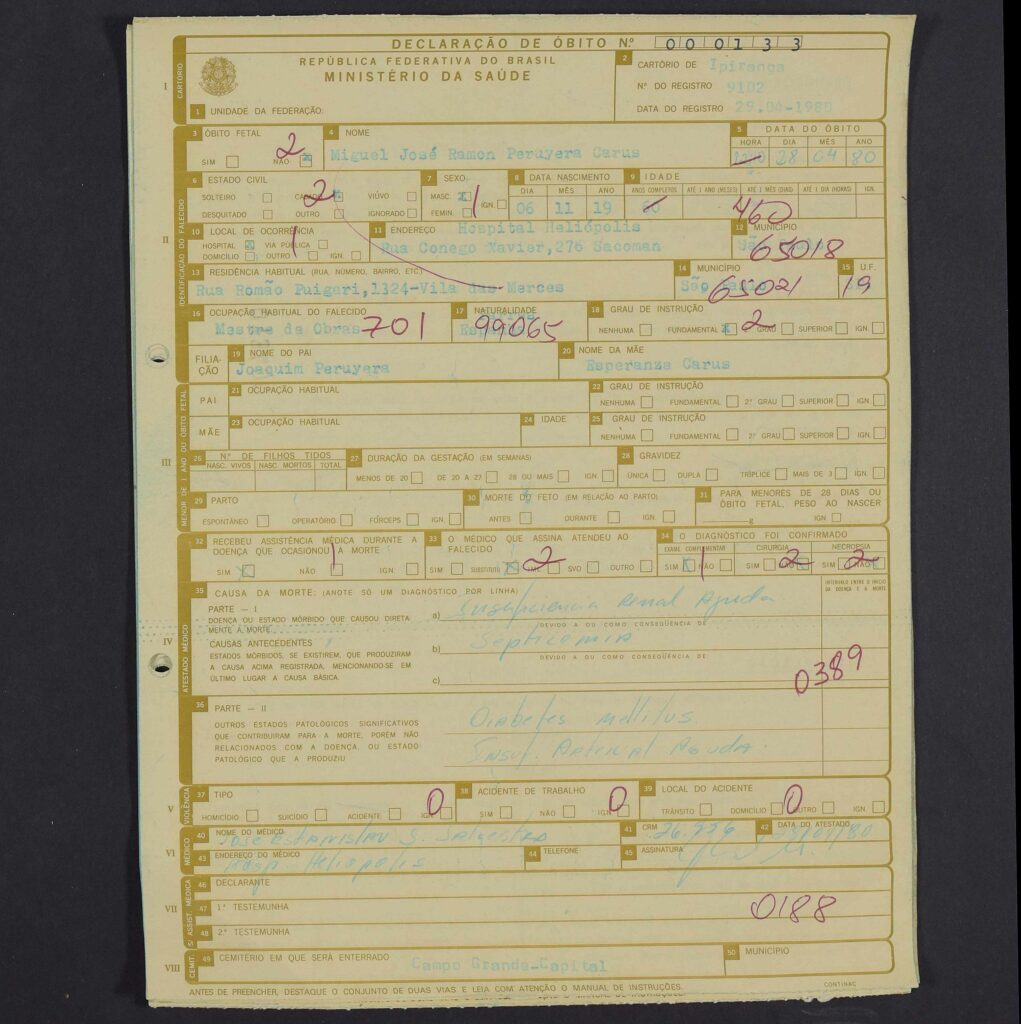 DECLARAÇÃO DE ÓBITO N.º 000133
REPÚBLICA FEDERATIVA DO BRASIL
MINISTÉRIO DA SAÚDE
I CARTÓRIO
1 UNIDADE DA FEDERAÇÃO:
2 CARTÓRIO DE Ipiranga
N.º DO REGISTRO 9102
DATA DO REGISTRO 29.04-1980
II IDENTIFICAÇÃO DO FALECIDO
3 ÓBITO FETAL
SIM NÃO x 2
4 NOME
Miguel José Ramon Peruyera Carus
5 DATA DO ÓBITO
HORA DIA MÊS ANO
28 04 80
6 ESTADO CIVIL
SOLTEIRO CASADO x VIÚVO
DESQUITADO OUTRO IGNORADO
2
7 SEXO
MASC. x IGN.
FEMIN.
1
8 DATA NASCIMENTO
DIA MÊS ANO
06 11 19
9 IDADE
ANOS COMPLETOS ATÉ 1 ANO (MESES) ATÉ 1 MÊS (DIAS) ATÉ 1 DIA (HORAS) IGN.
60
460
10 LOCAL DE OCORRÊNCIA
HOSPITAL x VIA PÚBLICA
DOMICÍLIO OUTRO IGN.
1
11 ENDEREÇO Hospital Heliópolis
Rua Conego Xavier,276 Sacoman
12 MUNICÍPIO
São Paulo
65018
13 RESIDÊNCIA HABITUAL (RUA, NÚMERO, BAIRRO, ETC)
Rua Romão Puigari,1324-Vila das Merces
14 MUNICÍPIO
São Paulo
65021
15 U.F.
19
16 OCUPAÇÃO HABITUAL DO FALECIDO
Mestre de Obras 701
17 NATURALIDADE
99065
18 GRAU DE INSTRUÇÃO
NENHUMA FUNDAMENTAL x 2º GRAU SUPERIOR IGN.
2
FILIAÇÃO
19 NOME DO PAI
Joaquim Peruyera
20 NOME DA MÃE
Esperanza Carus
III MENOR DE 1 ANO OU ÓBITO FETAL
PAI
21 OCUPAÇÃO HABITUAL
22 GRAU DE INSTRUÇÃO
NENHUMA FUNDAMENTAL 2º GRAU SUPERIOR IGN.
MÃE
23 OCUPAÇÃO HABITUAL
24 IDADE
25 GRAU DE INSTRUÇÃO
NENHUMA FUNDAMENTAL 2º GRAU SUPERIOR IGN.
26 N.º DE FILHOS TIDOS
NASC. VIVOS NASC. MORTOS TOTAL
27 DURAÇÃO DA GESTAÇÃO (EM SEMANAS)
MENOS DE 20 DE 20 A 27 28 OU MAIS IGN.
28 GRAVIDEZ
ÚNICA DUPLA TRÍPLICE MAIS DE 3 IGN.
29 PARTO
ESPONTÂNEO OPERATÓRIO FÓRCEPS IGN.
30 MORTE DO FETO (EM RELAÇÃO AO PARTO)
ANTES DURANTE IGN.
31 PARA MENORES DE 28 DIAS OU
ÓBITO FETAL, PESO AO NASCER
g IGN
IV ATESTADO MÉDICO
32 RECEBEU ASSISTÊNCIA MÉDICA DURANTE A
DOENÇA QUE OCASIONOU A MORTE
SIM x NÃO IGN
1
33 O MÉDICO QUE ASSINA ATENDEU AO
FALECIDO
SIM SUBSTITUTO x IML SVO OUTRO
2
34 O DIAGNÓSTICO FOI CONFIRMADO
EXAME COMPLEMENTAR CIRURGIA NECROPSIA
SIM x NÃO SIM NÃO x SIM NÃO x
1 2 2
35 CAUSA DA MORTE: (ANOTE SÓ UM DIAGNÓSTICO POR LINHA)
INTERVALO ENTRE O INÍCIO
DA DOENÇA E A MORTE
PARTE — I
DOENÇA OU ESTADO MÓRBIDO QUE CAUSOU DIRETA
MENTE A MORTE
a) Insuficiencia Renal Aguda
DEVIDO A OU COMO CONSEQÜÊNCIA DE
CAUSAS ANTECEDENTES
ESTADOS MÓRBIDOS, SE EXISTIREM, QUE PRODUZIRAM
A CAUSA ACIMA REGISTRADA, MENCIONANDO-SE EM
ÚLTIMO LUGAR A CAUSA BÁSICA.
b) Septicemia
DEVIDO A OU COMO CONSEQÜÊNCIA DE:
c)
0389
36 PARTE — II
OUTROS ESTADOS PATOLÓGICOS SIGNIFICATIVOS
QUE CONTRIBUIRAM PARA A MORTE, PORÉM NÃO
RELACIONADOS COM A DOENÇA, OU ESTADO
PATOLÓGICO QUE A PRODUZIU
Diabetes mellitus.
Insuf. Arterial Aguda.
V VIOLÊNCIA
37 TIPO
HOMICÍDIO SUICÍDIO ACIDENTE IGN.
0
38 ACIDENTE DE TRABALHO
SIM NÃO IGN
0
39 LOCAL DO ACIDENTE
TRÂNSITO DOMICÍLIO OUTRO IGN.
0
VI MÉDICO
40 NOME DO MÉDICO
José Estanislau S.
41 CRM
42 DATA DO ATESTADO
43 ENDEREÇO DO MÉDICO
Hosp Heliopolis
44 TELEFONE
45 ASSINATURA
VII S/ ASSIST. MÉDICA
46 DECLARANTE
47 1.ª TESTEMUNHA
0188
48 2.ª TESTEMUNHA
VIII CEMIT.
49 CEMITÉRIO EM QUE SERÁ ENTERRADO
Campo Grande-Capital
50 MUNICÍPIO
ANTES DE PREENCHER, DESTAQUE O CONJUNTO DE DUAS VIAS E LEIA COM ATENÇÃO O MANUAL DE INSTRUÇÕES.
CONTINAC